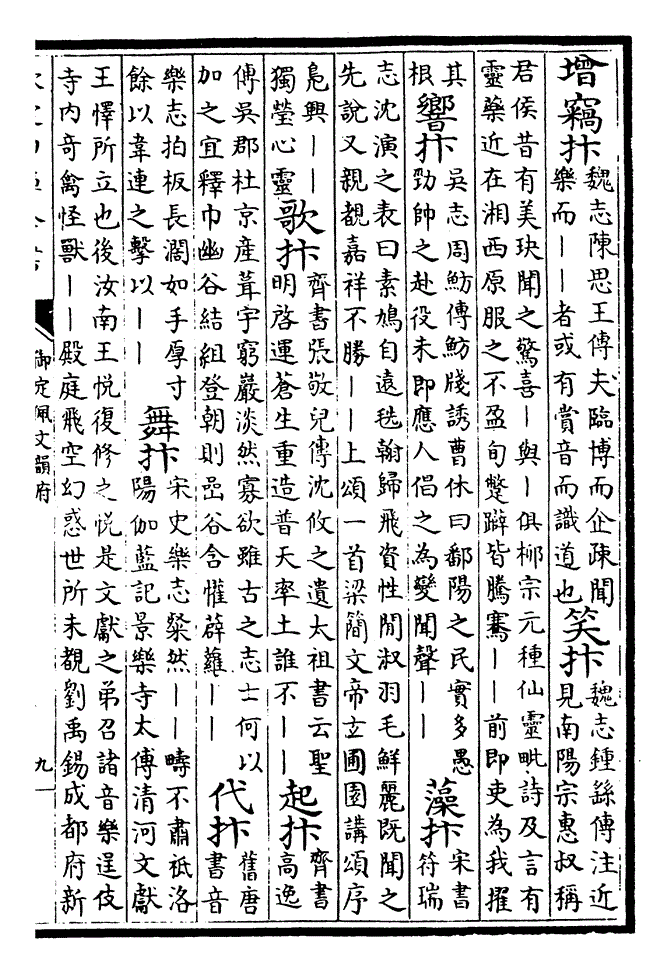 增竊抃
魏志陳思王傳夫臨博而企竦聞
樂而——者或有賞音而識道也
笑抃
魏志鍾繇傳注近
見南陽宗惠叔稱
君侯昔有美玦聞之驚喜—與—俱柳宗元種仙靈毗詩及言有
靈藥近在湘西原服之不盈旬蹩躃皆騰騫——前即吏為我擢
其
根
響抃
吳志周魴傳魴牋誘曹休曰鄱陽之民實多愚
勁帥之赴役未即應人倡之為變聞聲——
藻抃
宋書
符瑞
志沈演之表曰素鳩自遠毨翰歸飛資性閒淑羽毛鮮麗既聞之
先說又親覩嘉祥不勝——上頌一首梁簡文帝玄圃園講頌序
鳬興——
獨瑩心靈
歌抃
齊書張敬兒傳沈攸之遺太祖書云聖
明啓運蒼生重造普天率土誰不——
起抃
齊書
高逸
傳吳郡杜京產葺宇窮巖淡然寡欲雖古之志士何以
加之宜釋巾幽谷結組登朝則嵒谷含懽薜蘿——
代抃
舊唐
書音
樂志拍板長濶如手厚寸
餘以韋連之擊以——
舞抃
宋史樂志粲然——疇不肅祗洛
陽伽藍記景樂寺太傅清河文獻
王懌所立也後汝南王悅復修之悅是文獻之弟召諸音樂逞伎
寺内奇禽怪獸——殿庭飛空幻惑世所未覩劉禹錫成都府新
御定佩文韻府
九一